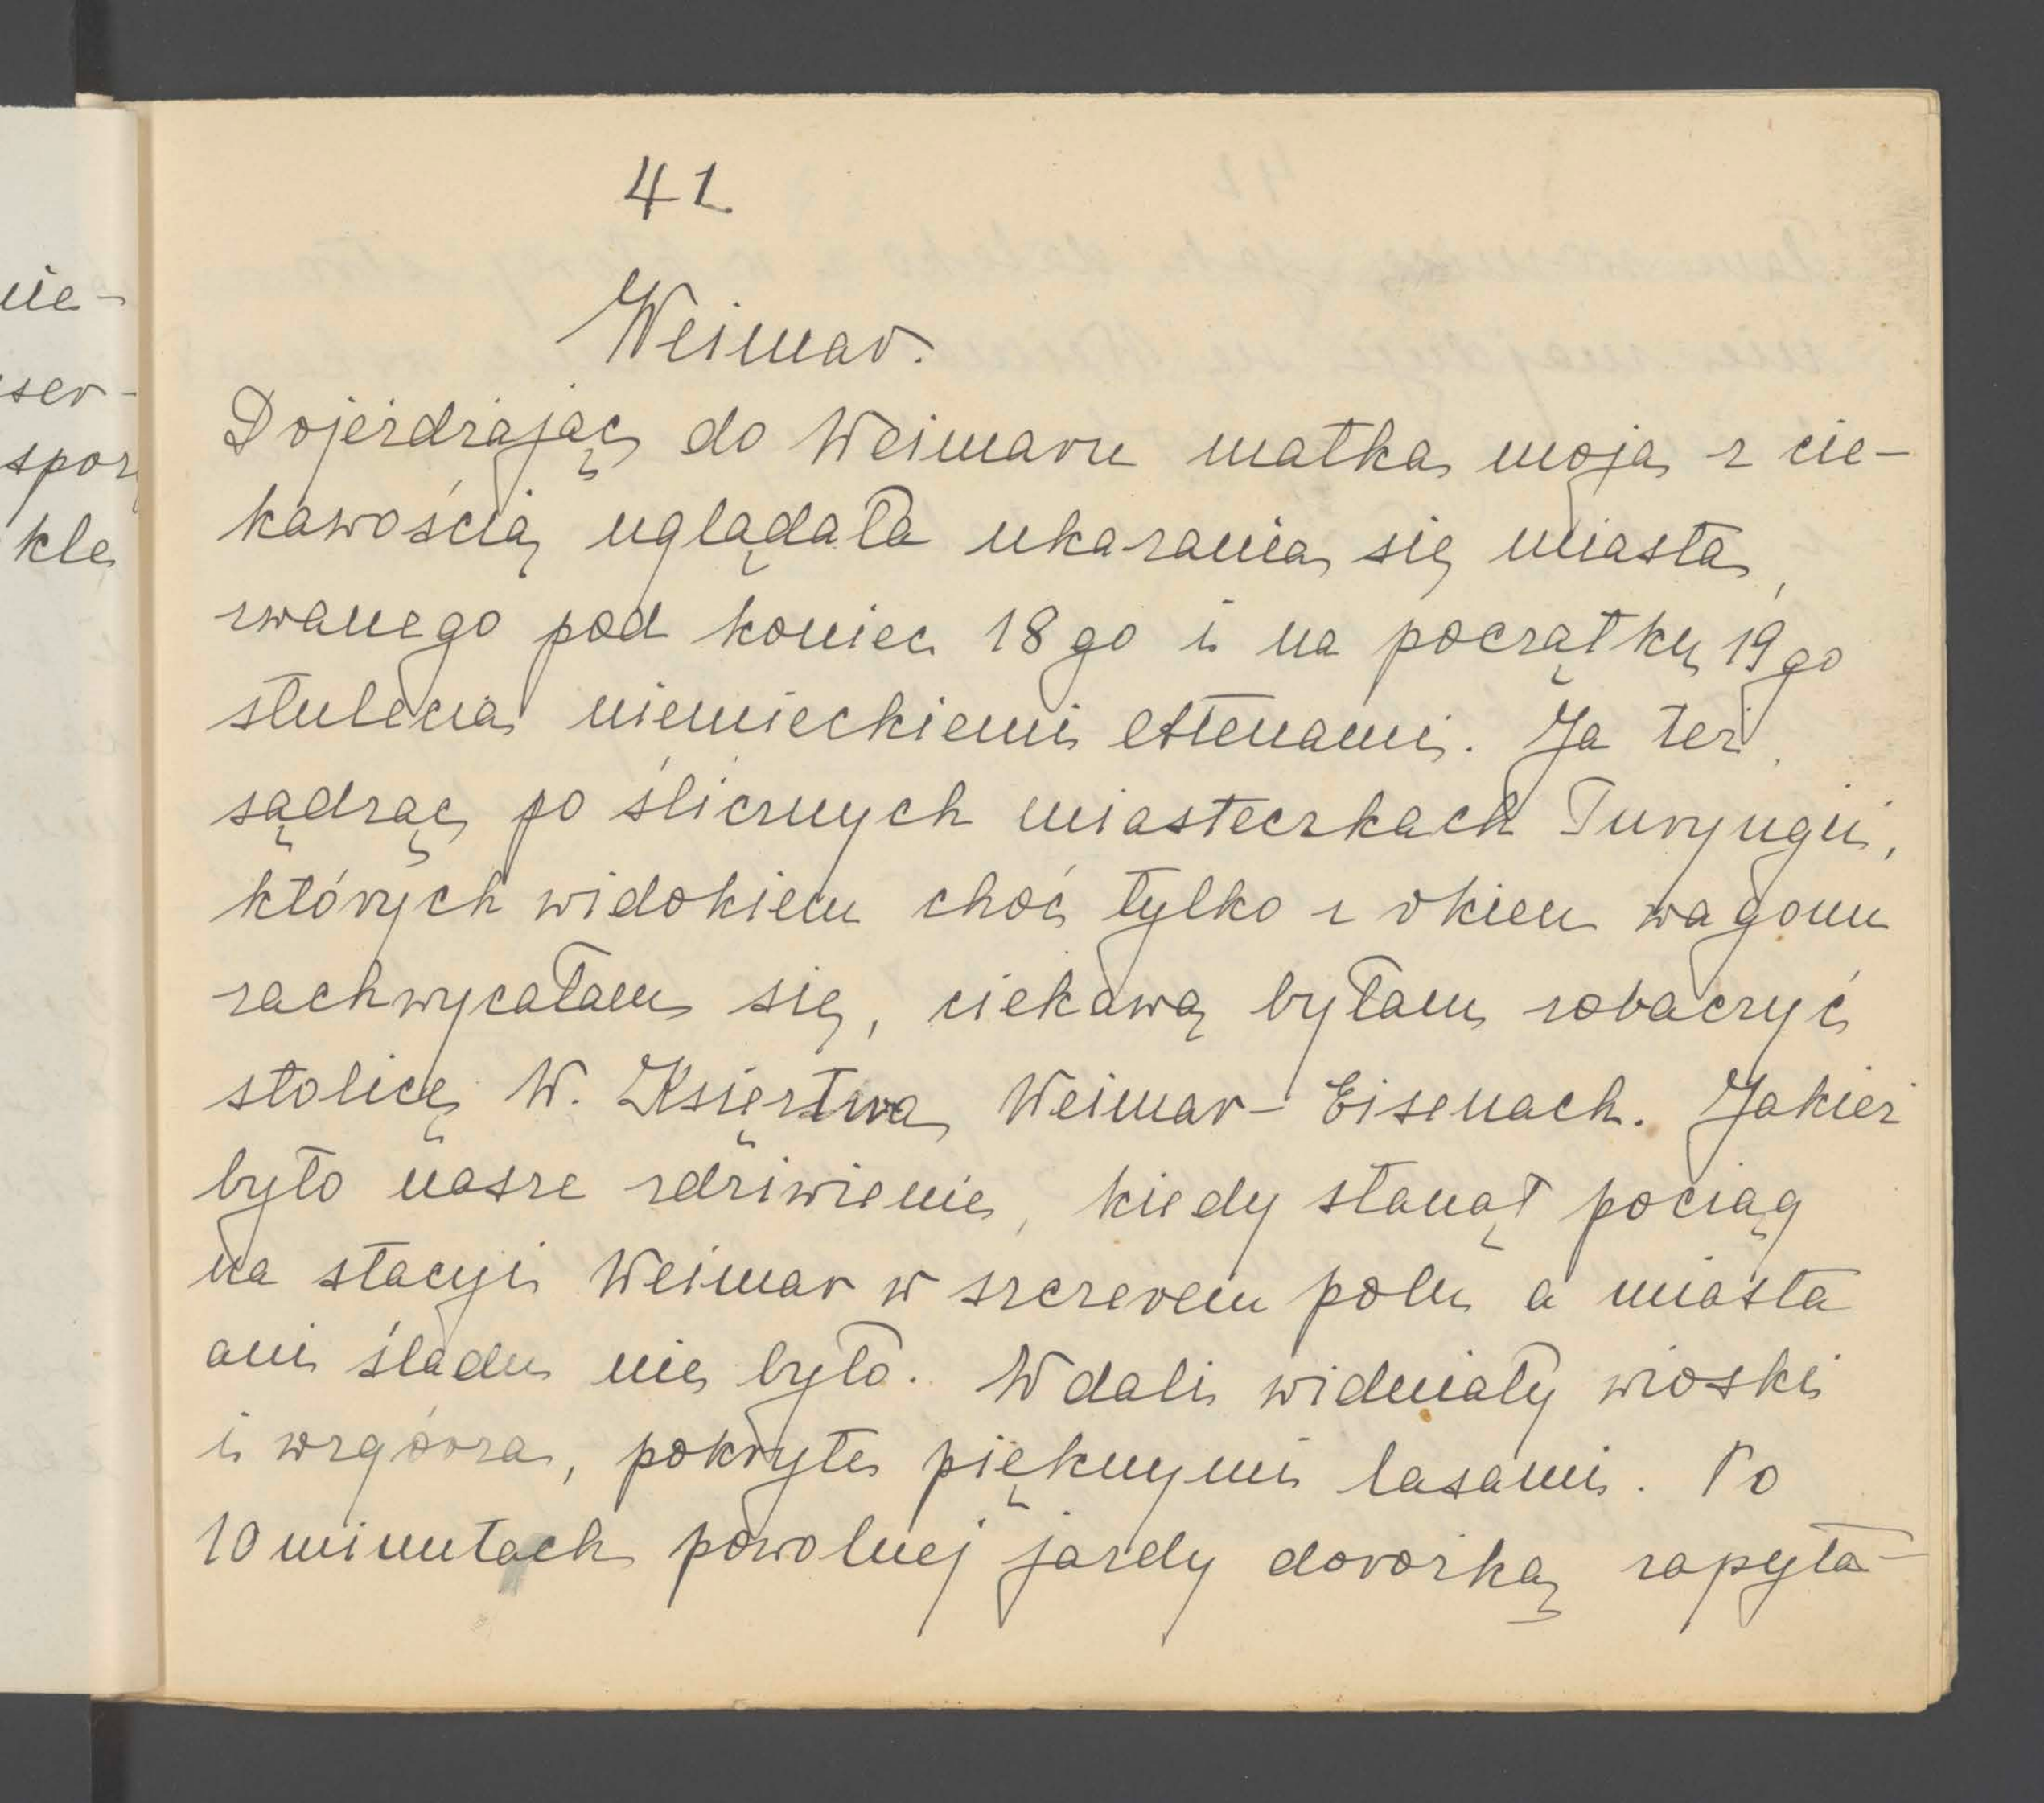 41
Weimar.
Dojeżdżając do Weimaru matka moja z cie-
kawością uglądała ukazania się miasta,
zwanego pod koniec 18go i na początku 19go
stulecia niemieckiemi Attenami. Ja też,
sądząc po ślicznych miasteczkach Turyngii,
których widokiem choć tylko z okien wagonu
zachwycałam się, ciekawą byłam zobaczyć
stolicę W. Księstwa Weimar-Eisenach. Jakież
było nasze zdziwienie, kiedy stanął pociąg
na stacyi Weimar w szczerem polu a miasta
ani śladu nie było. W dali widniały wioski
i wzgórza, pokryte pięknymi lasami. Po
10 minutach powolnej jazdy dorożką zapyta-
nie-
ser-
kle